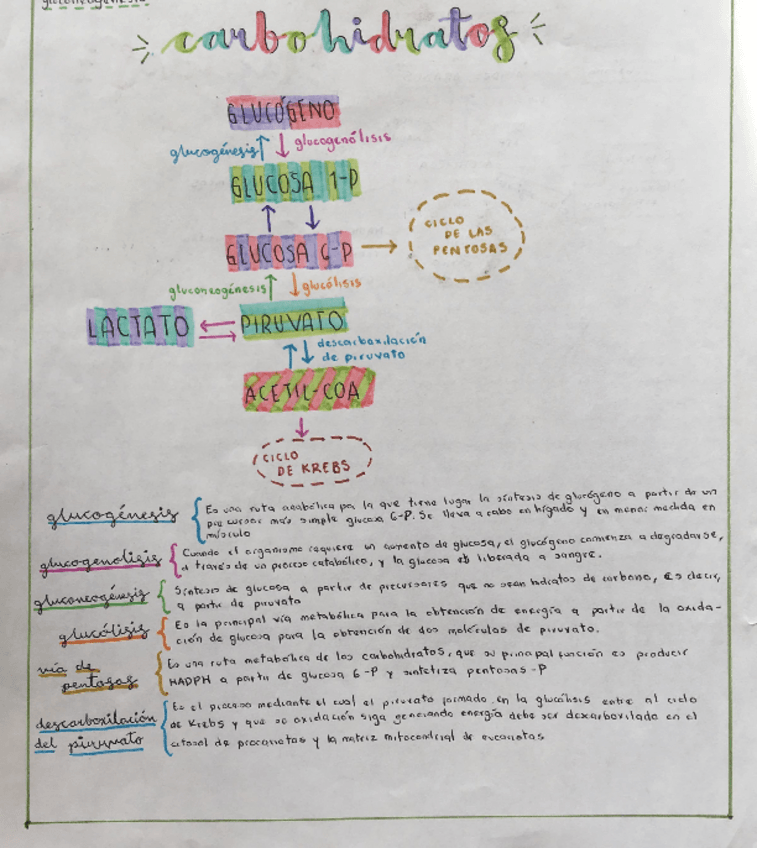 gluconeogénesis
carbohidratos
GLUCÓGENO
glucogénesis glucogenólisis
GLUCOSA 1-P
GLUCOSA 6-P
CICLO
DE LAS
PENTOSAS
gluconeogénesis glucólisis
LACTATO PIRUVATO
descarboxilación
de piruvato
ACETIL-COA
CICLO
DE KREBS
glucogénesis
Es una ruta anabólica por la que tiene lugar la síntesis de glucógeno a partir de un
precursor más simple glucosa 6-P. Se lleva a cabo en hígado y en menor medida en
músculo
glucogenolisis
Cuando el organismo requiere un aumento de glucosa, el glucógeno comienza a degradarse,
a través de un proceso catabólico, y la glucosa es liberada a sangre.
gluconeogénesis
Síntesis de glucosa a partir de precursores que no sean hidratos de carbono, es decir,
a partir de piruvato
glucólisis
Es la principal vía metabólica para la obtención de energía a partir de la oxida-
ción de glucosa para la obtención de dos moléculas de piruvato.
vía de
pentosas
Es una ruta metabólica de los carbohidratos, que su principal función es producir
NADPH a partir de glucosa 6-P y sintetiza pentosas-P
descarboxilación
del piruvato
Es el proceso mediante el cual el piruvato formado en la glucólisis entre al ciclo
de Krebs y que su oxidación siga generando energía debe ser descarboxilada en el
citosol de procariotas y la matriz mitocondrial de eucariotas